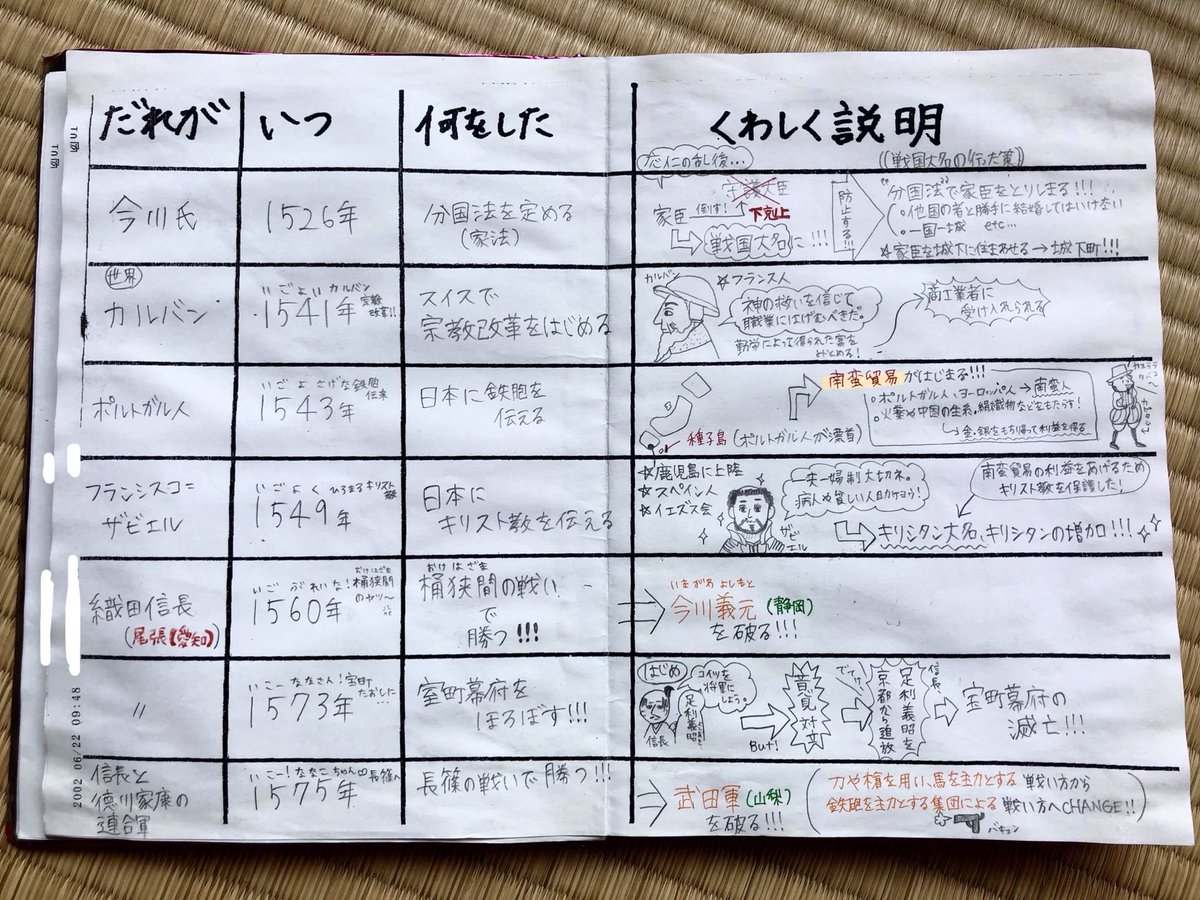 だれが
いつ
何をした
くわしく説明
((戦国大名の行った策))
今川氏
1526年
分国法を定める
(家法)
応仁の乱後…
家臣
倒す!
下剋上
戦国大名に!!!
防止する!!!
"分国法"で家臣をとりしまる!!!
。他国の者と勝手に結婚してはいけない
。一国一城 etc…
☆家臣を城下に住まわせる→城下町!!!
世界
カルバン
いごよい カルバン
1541年
宗教改革!!
スイスで
宗教改革をはじめる
カルバン
☆フランス人
神の救いを信じて
職業にはげむべきだ。
勤労によって得られた富を
みとめる!
商工業者に
受け入れられる
ポルトガル人
いごよ さげな鉄砲伝来
1543年
日本に鉄砲を
伝える
種子島(ポルトガル人が漂着)
南蛮貿易がはじまる!!!
。ポルトガル人、ヨーロッパ人→南蛮人
。火薬や中国の生糸、絹織物などをもたらす!
→金・銀をもち帰って利益を得る
カステラ
タバコ
フランシスコ=
ザビエル
いごよく ひろまるキリスト教
1549年
日本に
キリスト教を伝える
☆鹿児島に上陸
☆スペイン人
☆イエズス会
ザビエル
一夫一婦制大切ネ。
病人や貧しい人助けヨウ!
南蛮貿易の利益をあげるため
キリスト教を保護した!
キリシタン大名、キリシタンの増加!!!
織田信長
(尾張【愛知】)
いごぶれいな!桶狭間のヤツ〜
おけはざま
1560年
おけはざま
桶狭間の戦い
で
勝つ!!!
いまがわ よしもと
今川義元(静岡)
を破る!!!
〃
いこーななさん!室町たおしに…
1573年
室町幕府を
ほろぼす!!!
はじめ
コイツを
将軍に
しよう。
信長
足利義昭
But!
意見対立
でてけ!
足利義昭を
京都から追放
信長
室町幕府の
滅亡!!!
信長と
徳川家康の
連合軍
いこー!ななこちゃん♡長篠へ
1575年
長篠の戦いで勝つ!!!
武田軍(山梨)
を破る!!!
刀や槍を用い、馬を主力とする戦い方から
鉄砲を主力とする集団による戦い方へCHANGE!!
バキュン
2002 06/22 09:48